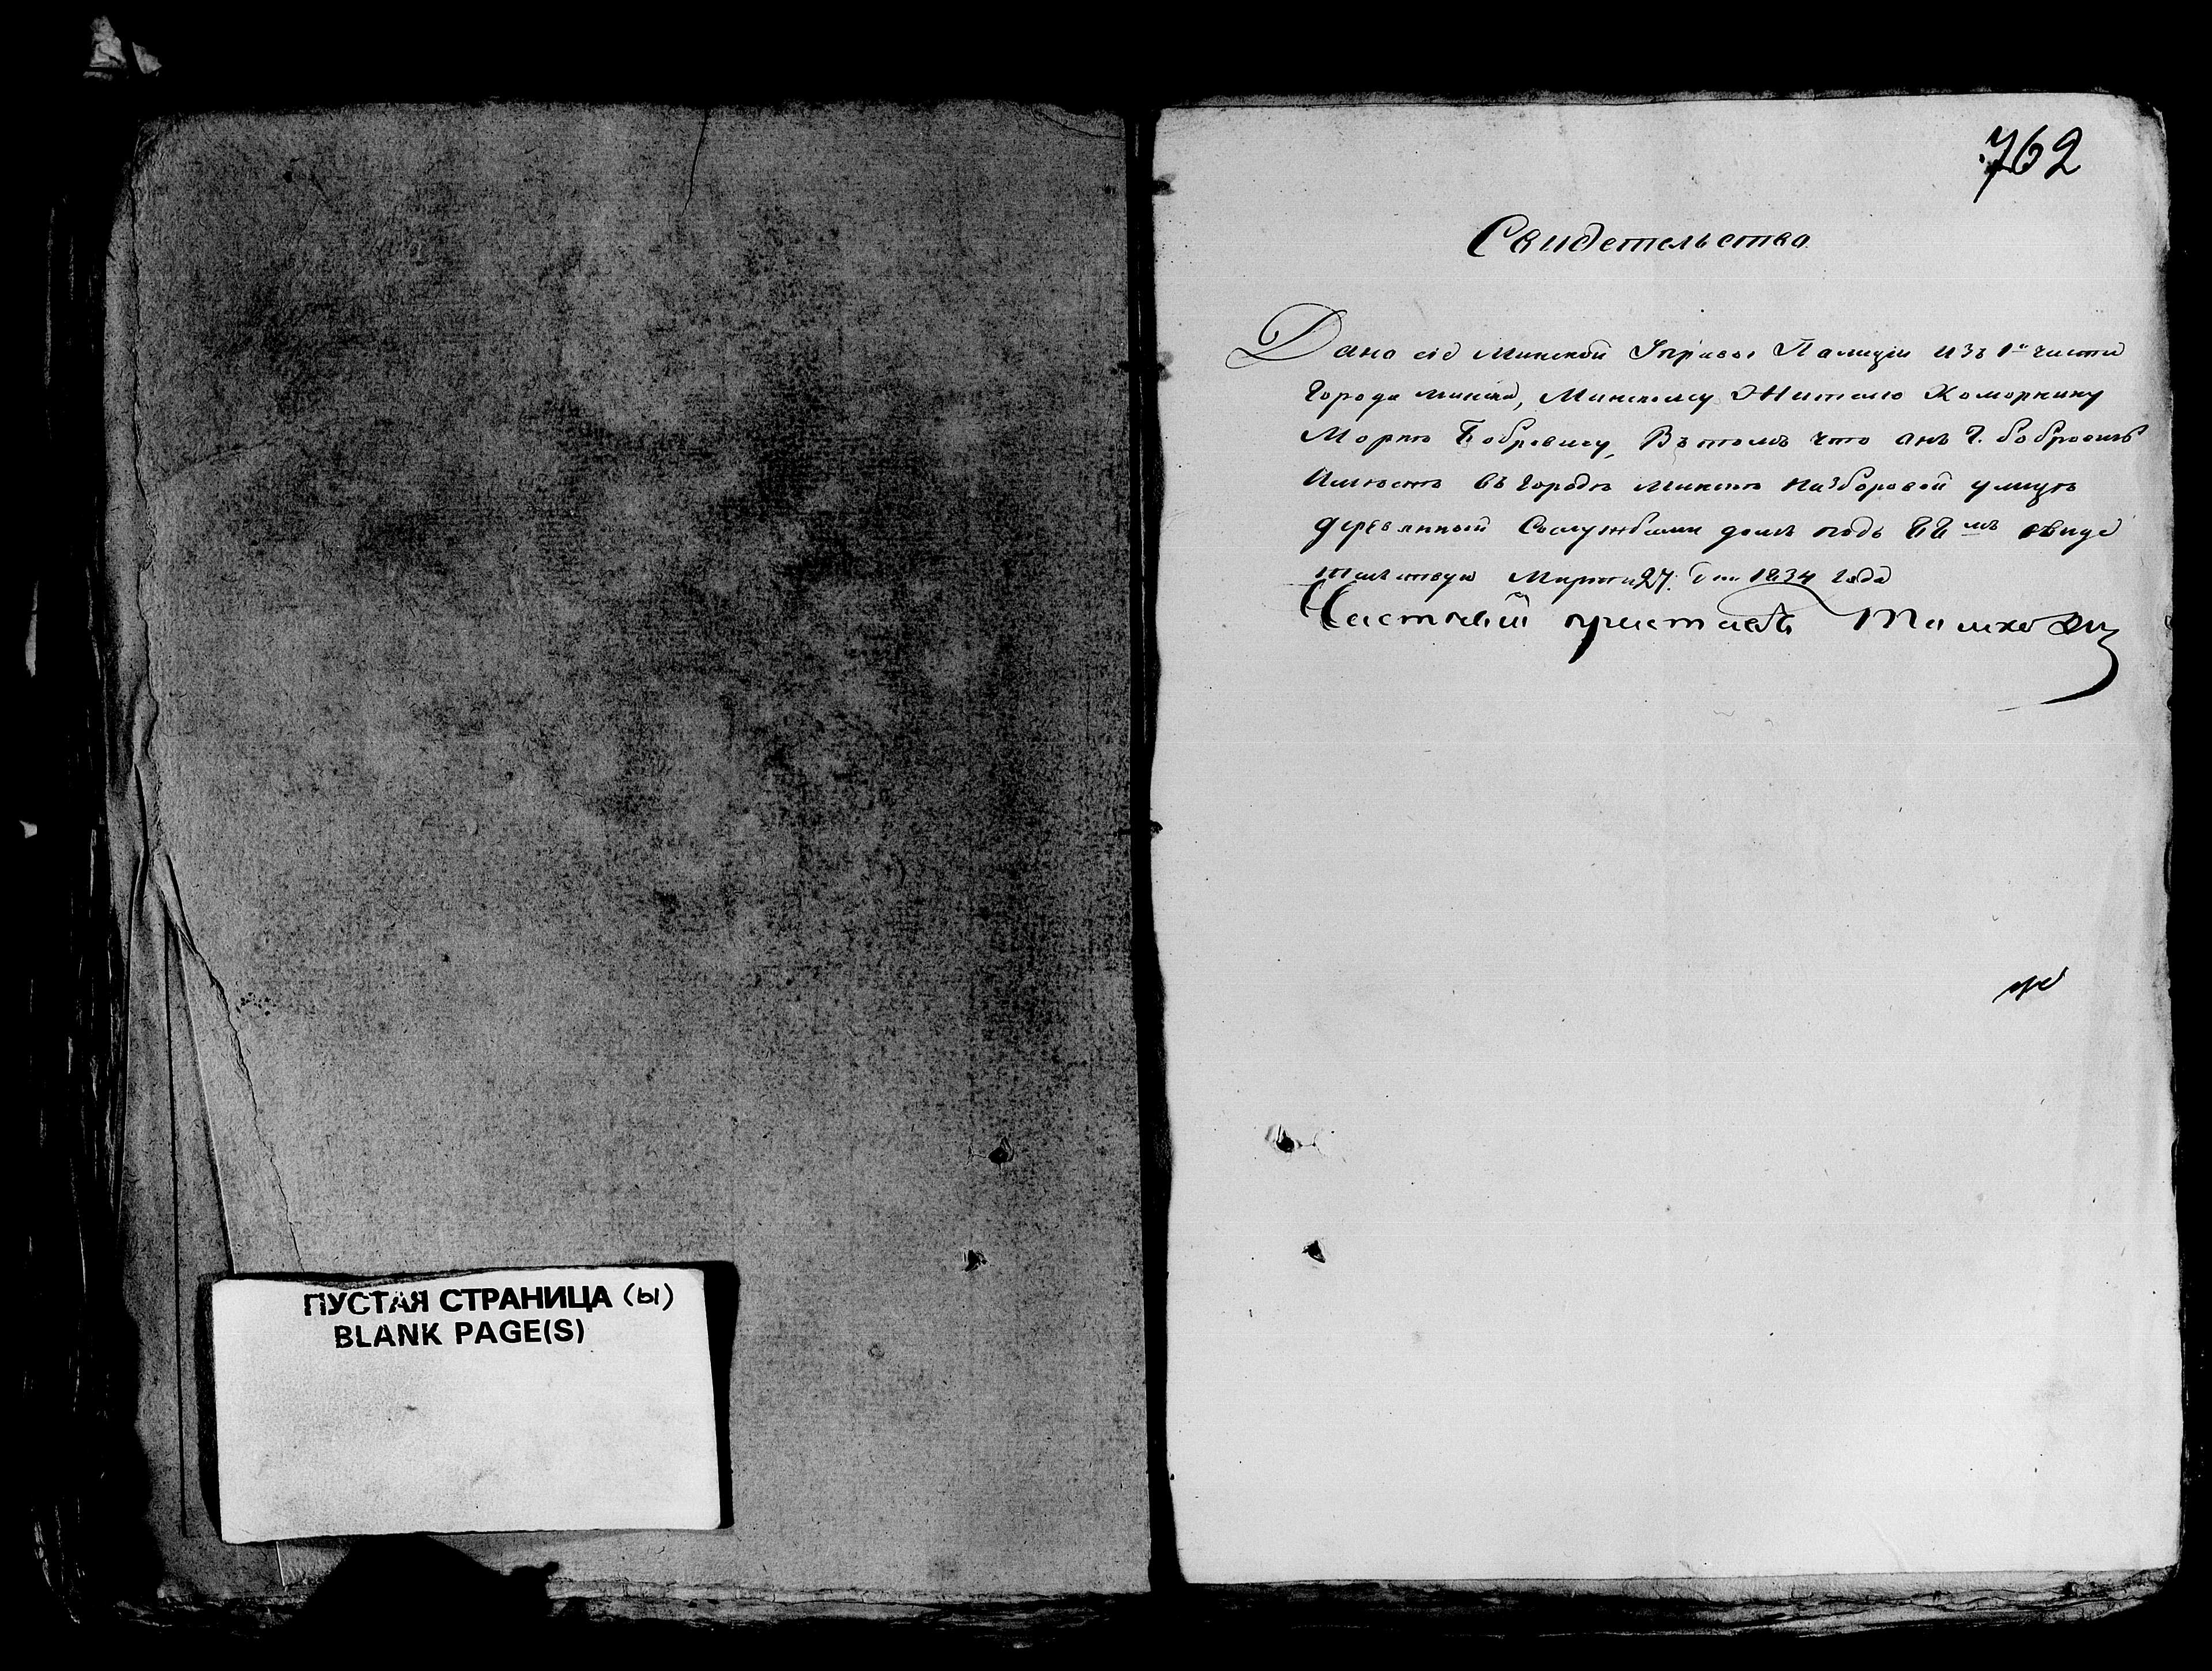 762
Свидетельство
Дано сіе Минской Управы Полиціи изъ 1й части
города минска, Минскому Жителю Коморнику
Бобровичу, Въ томъ что онъ Г. бобровичь
Имѣетъ въ городѣ минскѣ на Зборовой улицѣ
деревянный Сослужбами домъ подъ мъ свиде
тельствую Марта 27. дня 1834 года
Частный приставъ
ПУСТАЯ СТРАНИЦА (ы)
BLANK PAGE(S)